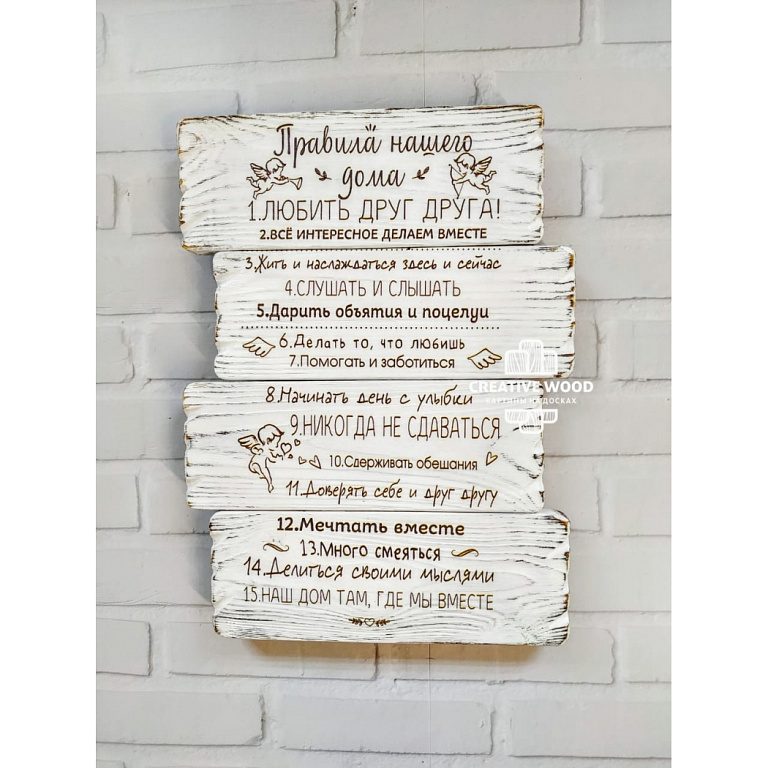 Правила нашего
дома
1.ЛЮБИТЬ ДРУГ ДРУГА!
2.ВСЁ ИНТЕРЕСНОЕ ДЕЛАЕМ ВМЕСТЕ
3.Жить и наслаждаться здесь и сейчас
4.СЛУШАТЬ И СЛЫШАТЬ
5.Дарить объятия и поцелуи
6.Делать то, что любишь
7.Помогать и заботиться
CREATIVE WOOD
КАРТИНЫ НА ДОСКАХ
8.Начинать день с улыбки
9.НИКОГДА НЕ СДАВАТЬСЯ
10.Сдерживать обещания
11.Доверять себе и друг другу
12.Мечтать вместе
13.Много смеяться
14.Делиться своими мыслями
15.НАШ ДОМ ТАМ, ГДЕ МЫ ВМЕСТЕ